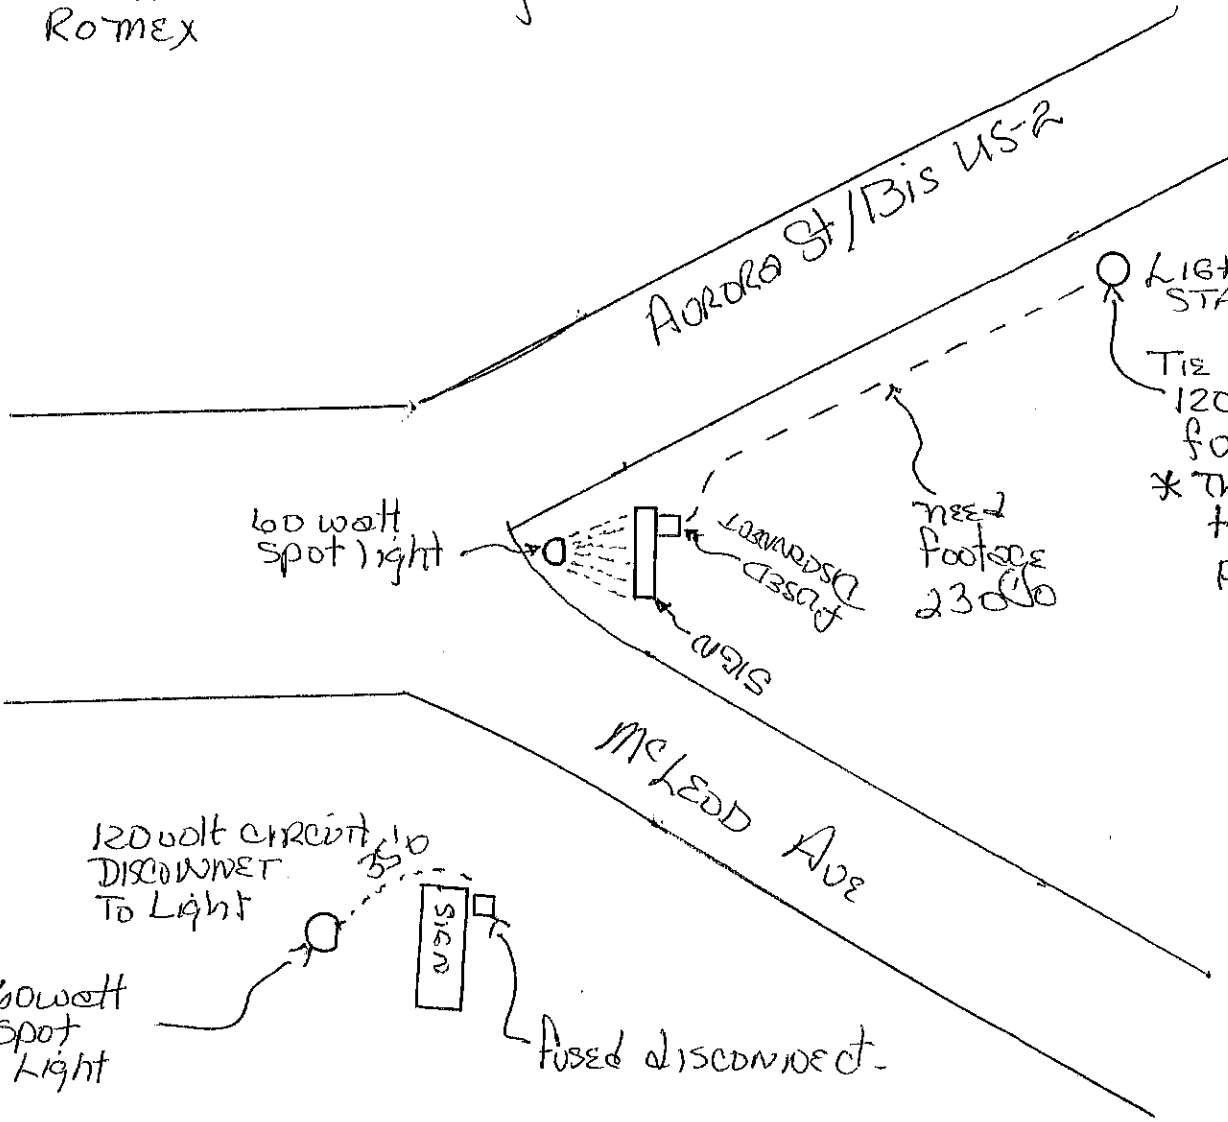 ROMEX
AURORA St/Bis US-2
TIE
120
60 watt
spot light
FUSED
DISCONNECT
SIGN
NEED
footage
McLEOD AVE
120 volt CIRCUIT
DISCONNET
To Light
SIGN
60 watt
Spot
Light
fused DISCONNECT-